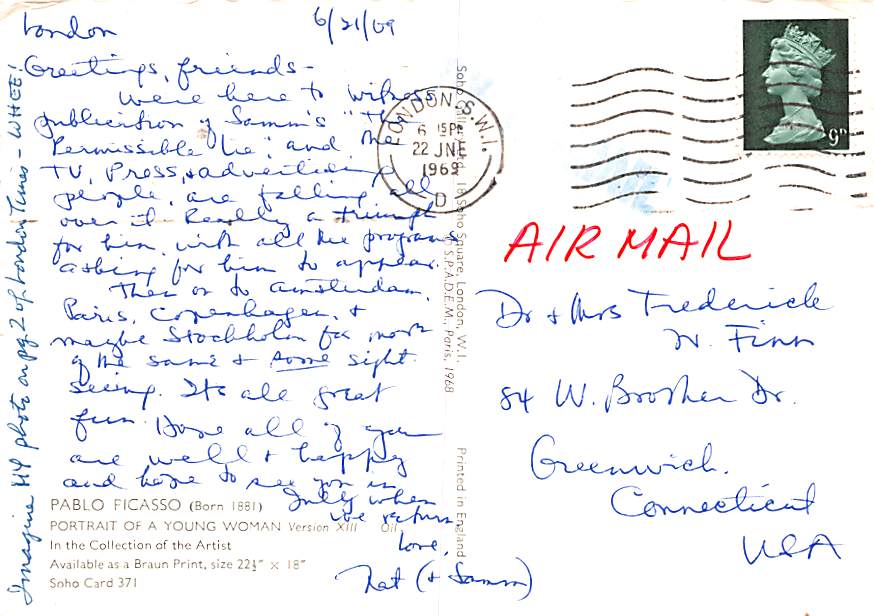 London 6/21/69
Greetings, friends -
We're here to witness
publication of Samm's "The
Permissible Lie", and the
TV, Press, & advertising
people, are falling all
over it. Really a triumph
for him, with all the programs
asking for him to appear.
Then on to Amsterdam,
Paris, Copenhagen, &
maybe Stockholm for more
of the same & some sight
seeing. It's all great
fun. Hope all of you
are well & happy
and hope to see you in
July when
we return
Love,
Nat (& Samm)
Imagine MY photo on pg. 2 of London Times - WHEE!
PABLO PICASSO (Born 1881)
PORTRAIT OF A YOUNG WOMAN Version XIII Oil
In the Collection of the Artist
Available as a Braun Print, size 22½" × 18"
Soho Card 371
Soho Square, London, W.1.
S.P.A.D.E.M., Paris, 1968
Printed in England
LONDON. S.W.1
6 15PM
22 JNE
1969
D
9D
AIR MAIL
Dr & Mrs Frederick
W. Finn
84 W. Brother Dr.
Greenwich.
Connecticut
USA